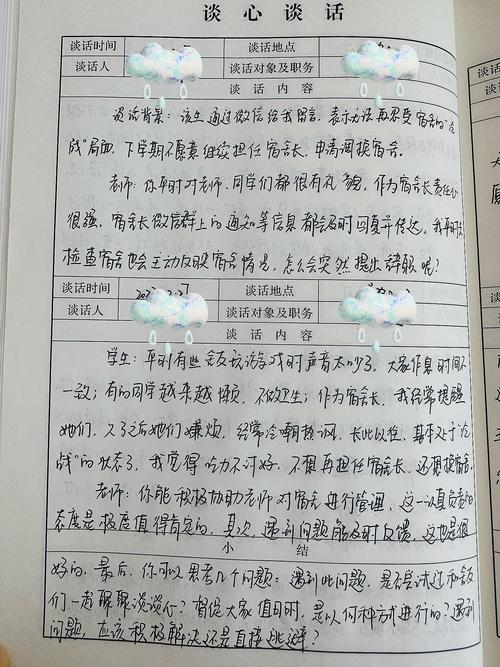 谈心谈话
谈话时间 谈话地点
谈话人 谈话对象及职务
谈 话 内 容
谈话背景：该生通过微信给我留言，表示无法再忍受宿舍的"冷
战"局面，下学期不愿意继续担任宿舍长，申请调换宿舍。
老师：你平时对老师、同学们都很有礼貌，作为宿舍长责任心
很强，宿舍长微信群上的通知等信息都会及时回复并传达，我平时去
检查宿舍也会主动反映宿舍情况，怎么会突然提出辞职呢？
谈话时间 谈话地点
谈话人 谈话对象及职务
谈 话 内 容
学生：平时有些舍友玩游戏时声音太吵了，大家作息时间不
一致；有的同学越来越懒，不做卫生；作为宿舍长，我经常提醒
她们，久了之后她们嫌烦，经常冷嘲热讽，长此以往，基本处于"冷
战"的状态了，我觉得吃力不讨好，不想再担任宿舍长，还想换宿舍。
老师：你能积极协助老师对宿舍进行管理，这一认真负责的
态度是极度值得肯定的，其次，遇到问题能及时反馈，这也是很
小 结
好的，最后，你可以思考几个问题：遇到此问题，是否尝试过和舍友
们一起聊聊谈谈心？督促大家值日时，是以何种方式进行的？遇到
问题，应该积极解决还是直接逃避？